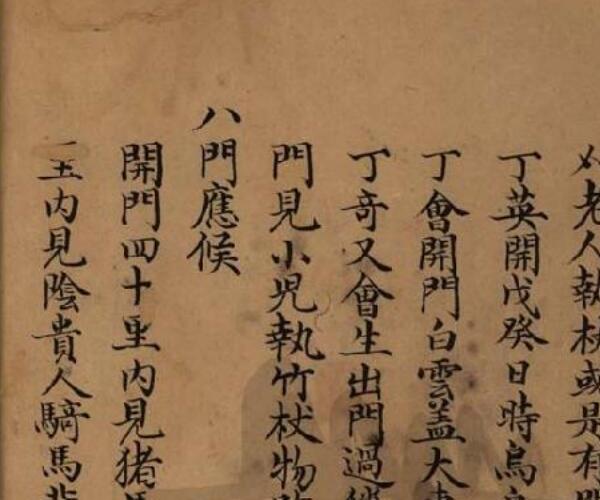 老人執杖或是有
丁英開戊癸日時烏
丁會開門白雲蓋大
丁奇又會生出門過
門見小児執竹杖物
八門應候
開門四十里内見猪馬
玉内見陰貴人騎馬